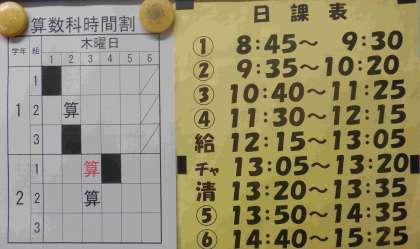 算数科時間割
木曜日
学年 組 1 2 3 4 5 6
1
1
2 算
3
2
1 算
2 算
3
日課表
① 8:45〜 9:30
② 9:35〜10:20
③ 10:40〜11:25
④ 11:30〜12:15
給 12:15〜13:05
チャ 13:05〜13:20
清 13:20〜13:35
⑤ 13:50〜14:35
⑥ 14:40〜15:25